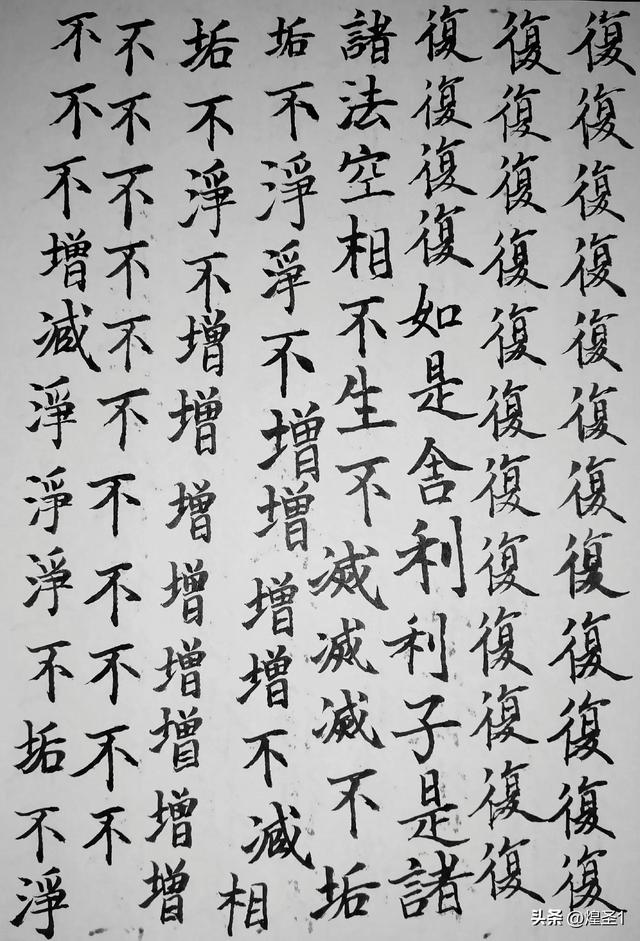 復復復復復復復復復復復復
復復復復復復復復復復復復
復復復復如是舍利利子是諸
諸法空相不生不滅滅滅不垢
垢不淨淨不增增增增不減相
垢不淨不增增增增增增增增
不不不不不不不不不不不
不不不增減淨淨淨不垢不淨
头条 @煌圣1